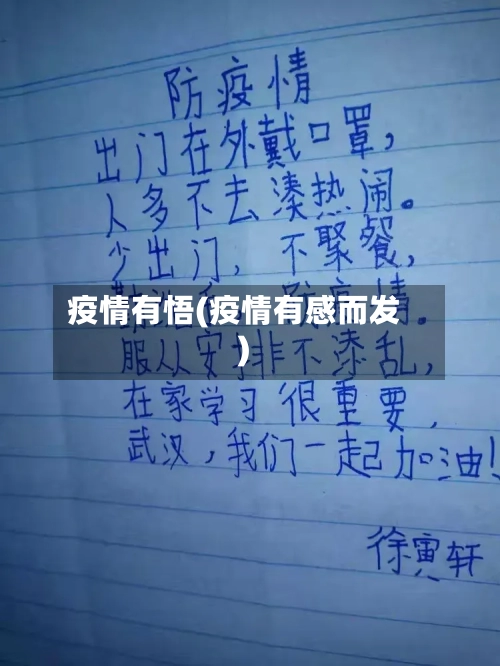 防疫情
出门在外戴口罩，
人多不去凑热闹。
少出门，不聚餐，
疫情有悟(疫情有感而发
)
服从安排不添乱，
在家学习很重要，
武汉，我们一起加油！
徐寅轩